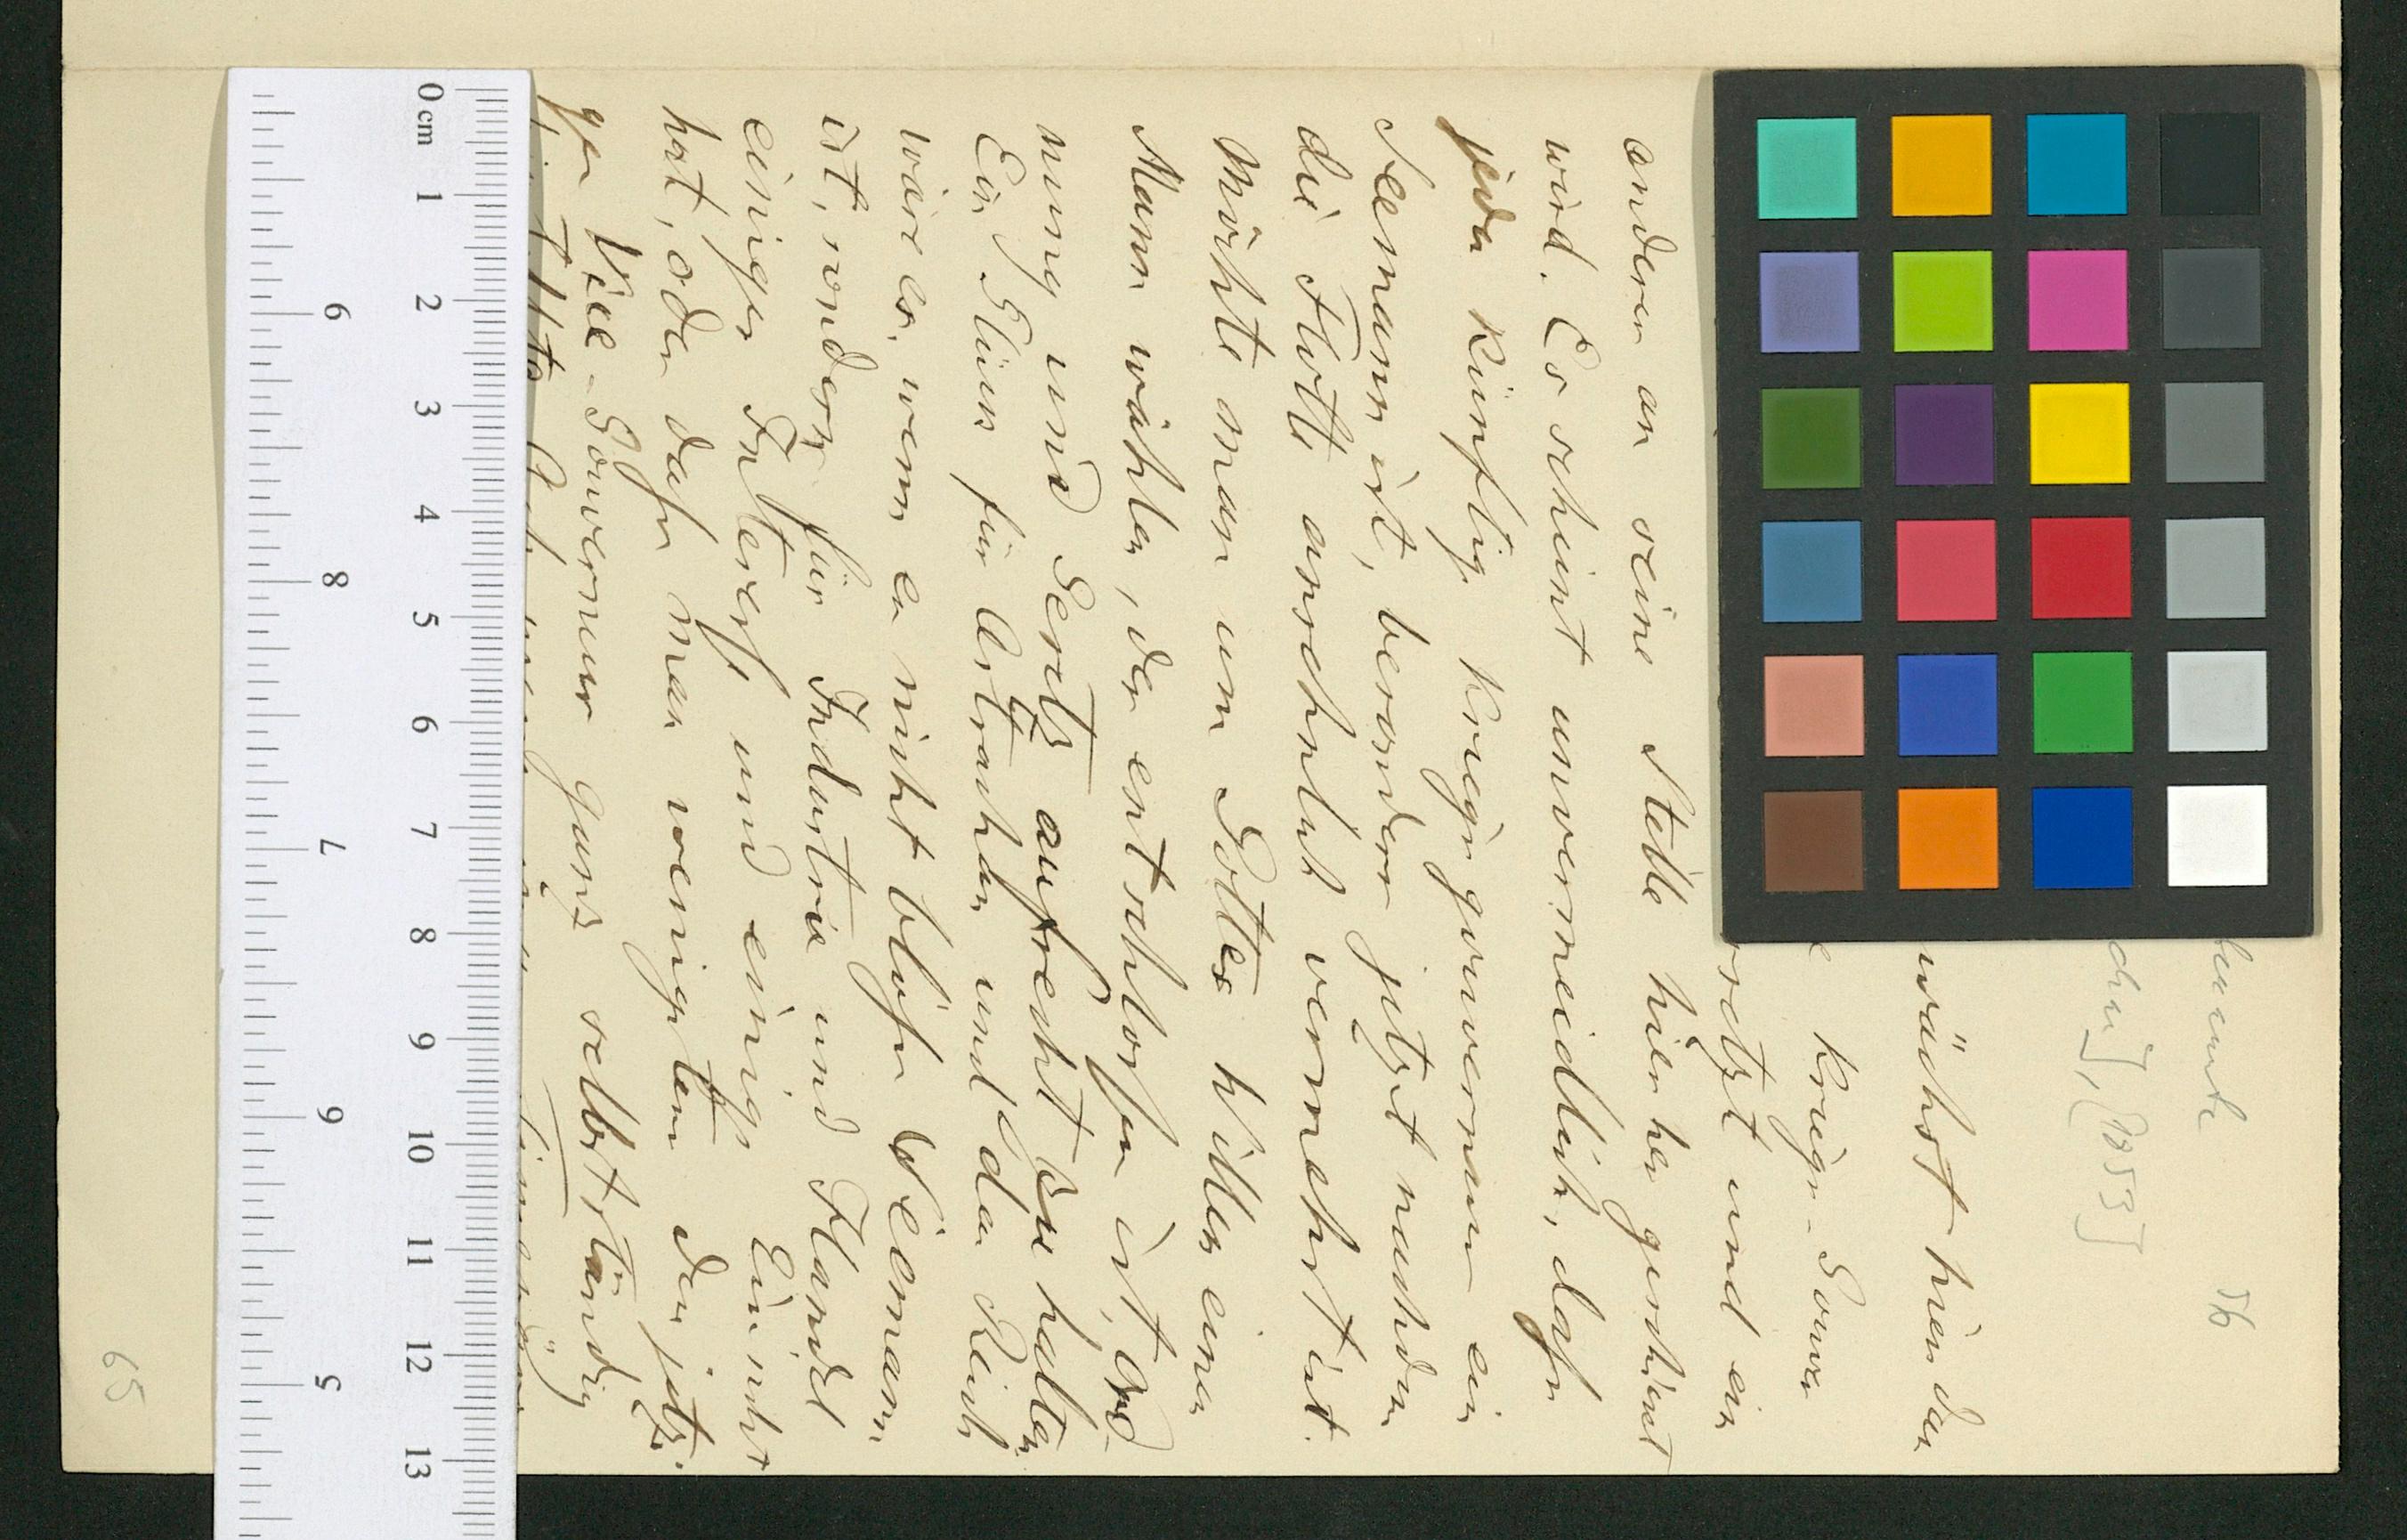 56
1853]
wächst hier der
Kriegs-Gouver
setzt und ein
anderer an seine Stelle hierher geschickt
wird. Es scheint unvermeidlich, dass
jeder künftige Kriegsgouverneur ein
Seemann ist, besonders jetzt nachdem
die Flotte ansehnlich vermehrt ist.
Möchte man um Gottes Willen einen
Mann wählen, der entschlossen ist, Ord-
nung und Gesetz aufrecht zu halten.
Ein Glück für Astrachan und das Reich
wäre es, wenn er nicht bloss Seemann
ist, sondern für Industrie und Handel
einiges Interesse und einige Einsicht
hat, oder dass man wenigstens den jetzi-
gen Vice-Gouverneur ganz selbstständig
65
0 cm 1 2 3 4 5 6 7 8 9 10 11 12 13